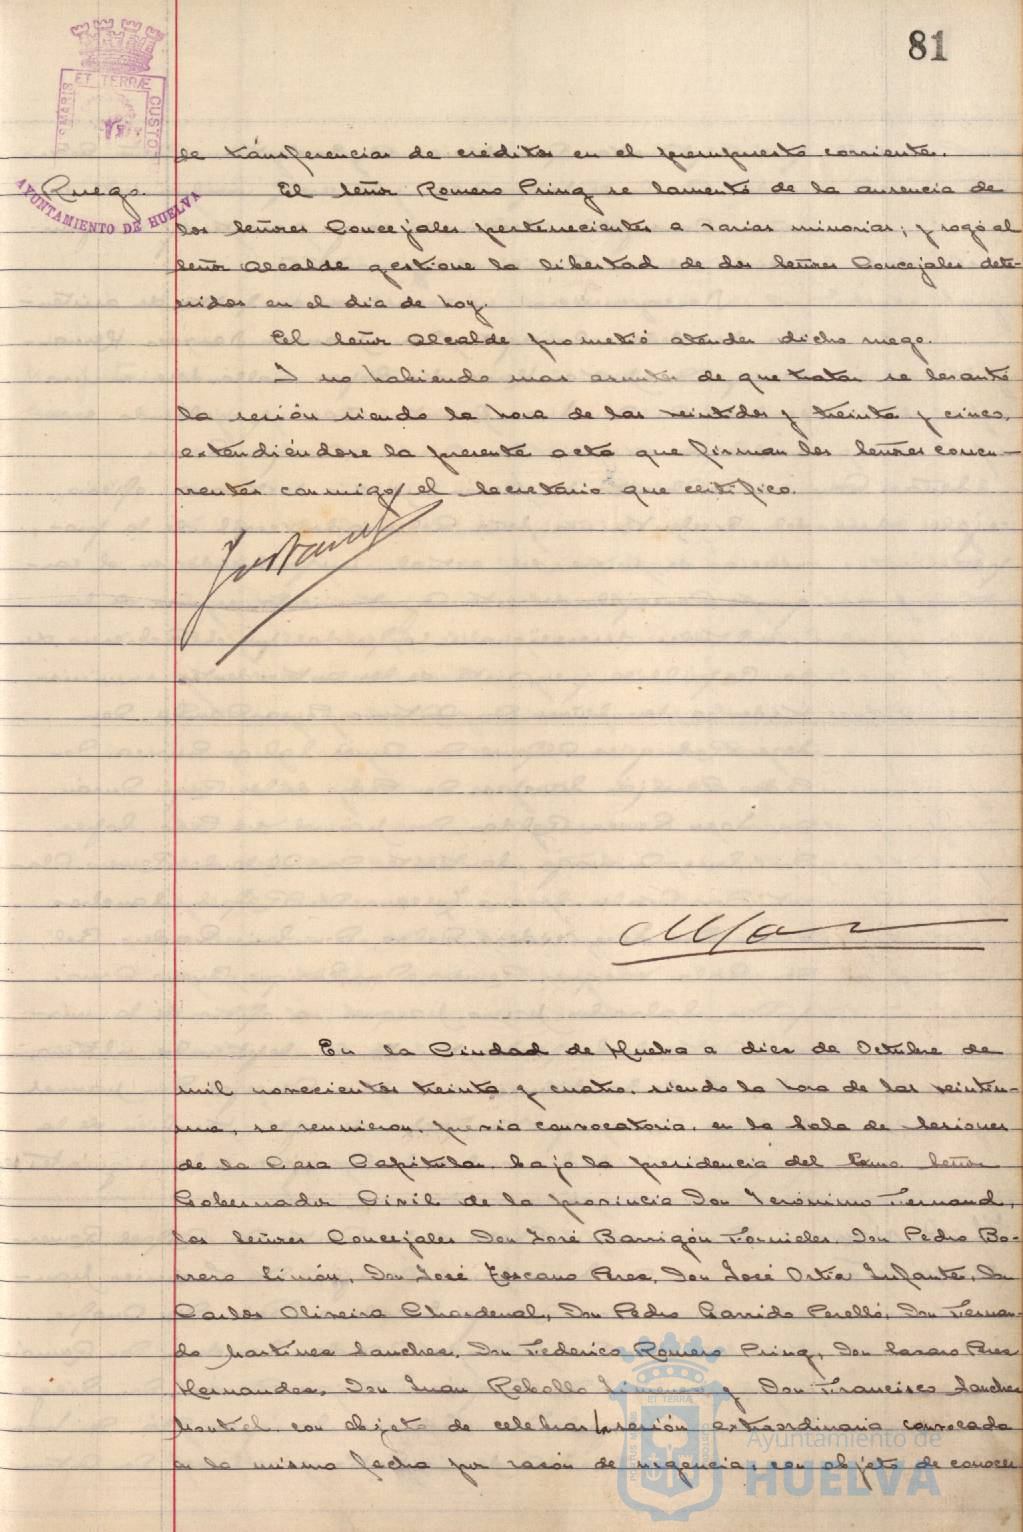 81
ET TERRÆ
MARIS
CUSTO
AYUNTAMIENTO DE HUELVA
de transferencias de créditos en el presupuesto corriente.
Ruego.
El señor Romero Pring se lamentó de la ausencia de
los señores Concejales pertenecientes a varias minorias; y rogó al
señor Alcalde gestione la libertad de dos señores Concejales dete-
nidos en el dia de hoy.
El señor Alcalde prometió atender dicho ruego.
Y no habiendo mas asuntos de que tratar se levantó
la sesión siendo la hora de las veintidos y treinta y cinco,
extendiéndose la presente acta que firman los señores concu-
rrentes conmigo el Secretario que certifico.
En la Ciudad de Huelva a diez de Octubre de
mil novecientos treinta y cuatro, siendo la hora de las veintiu-
una, se reunieron, previa convocatoria, en la Sala de Sesiones
de la Casa Capitular, bajo la presidencia del Excmo Señor
Gobernador Civil de la provincia Don Jerónimo Fernand,
los señores Concejales Don José Barrigón Fornieles, Don Pedro Bo-
rrero Limón, Don José Toscano Perez, Don José Ortiz Infante, Don
Carlos Oliveira Chardenal, Don Pedro Garrido Perelló, Don Fernan-
do Martinez Sanchez, Don Federico Romero Pring, Don Lazaro Perez
Hernandez, Don Juan Rebollo Jimenez y Don Francisco Sanchez
Montiel, con objeto de celebrar sesión extraordinaria convocada
en la misma fecha por razón de urgencia, con objeto de conocer
Ayuntamiento de
HUELVA